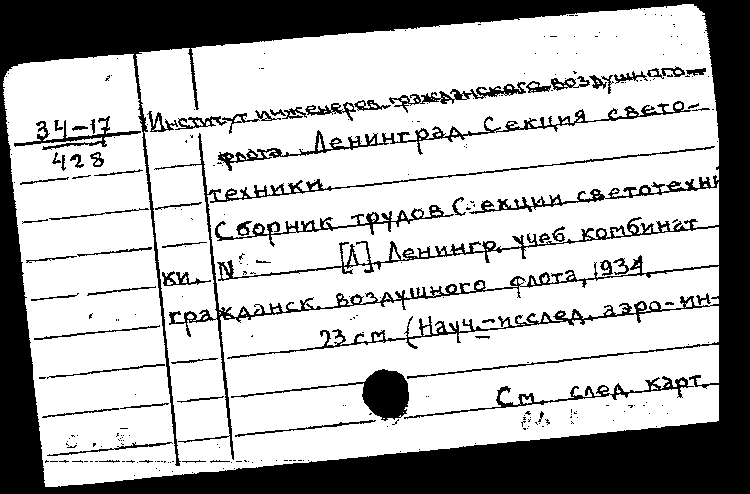 34-17
428
Институт инженеров гражданского воздушного
флота. Ленинград. Секция свето-
техники.
Сборник трудов Секции светотехни
ки. N – [Л], Ленингр. учеб. комбинат
гражданск. воздушного флота, 1934.
23 см. (Науч.-исслед. аэро-ин-
См. след. карт.